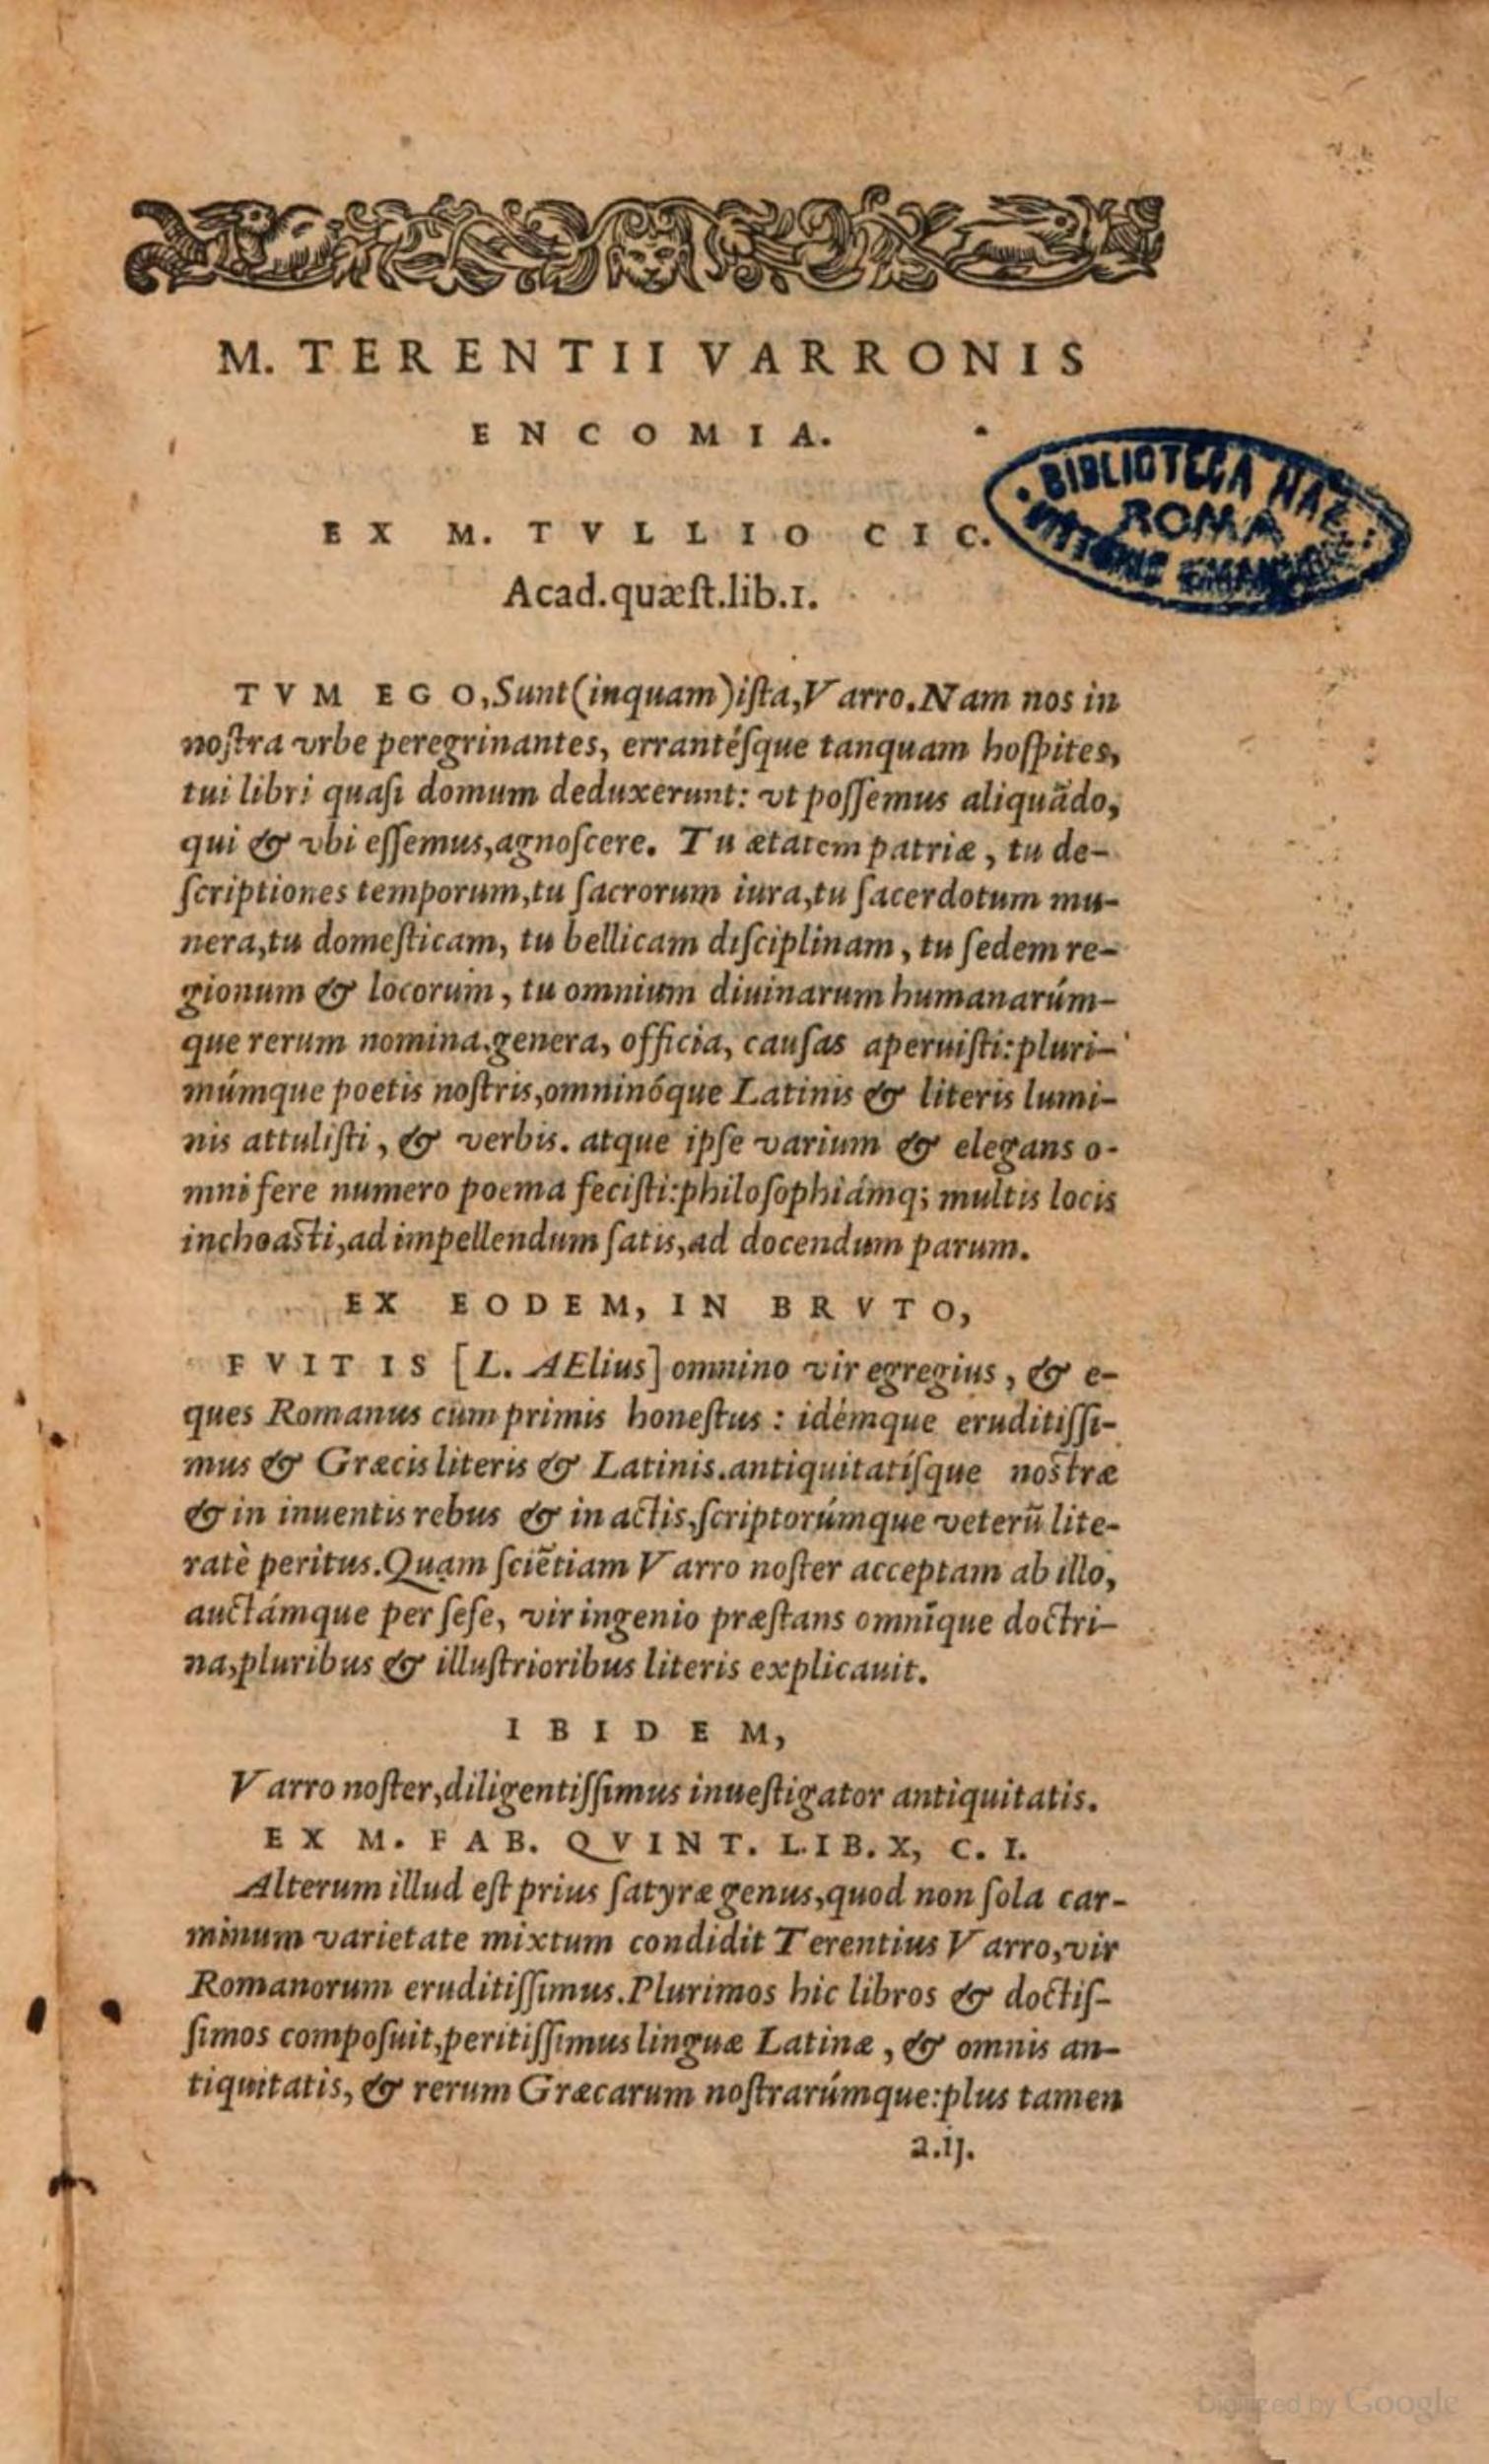 M. TERENTII VARRONIS
ENCOMIA.
BIBLIOTECA NAZ.
ROMA
VITTORIO EMANUELE
EX M. TVLLIO CIC.
Acad.quæst.lib.1.
TVM EGO,Sunt(inquam)iſta,Varro.Nam nos in
noſtra vrbe peregrinantes, errantéſque tanquam hoſpites,
tui libri quaſi domum deduxerunt: vt poſſemus aliquãdo,
qui & vbi eſſemus,agnoſcere. Tu ætatem patriæ, tu de-
ſcriptiones temporum,tu ſacrorum iura,tu ſacerdotum mu-
nera,tu domeſticam, tu bellicam diſciplinam, tu ſedem re-
gionum & locorum, tu omnium diuinarum humanarúm-
que rerum nomina,genera, officia, cauſas aperuiſti:pluri-
múmque poetis noſtris,omninóque Latinis & literis lumi-
nis attuliſti, & verbis. atque ipſe varium & elegans o-
mni fere numero poema feciſti:philoſophiámq; multis locis
inchoaſti,ad impellendum ſatis,ad docendum parum.
EX EODEM, IN BRVTO,
FVIT IS [L. AElius] omnino vir egregius, & e-
ques Romanus cum primis honeſtus : idémque eruditiſſi-
mus & Græcis literis & Latinis.antiquitatíſque noſtræ
& in inuentis rebus & in actis,ſcriptorúmque veterũ lite-
ratè peritus.Quam ſciẽtiam Varro noſter acceptam ab illo,
auctámque per ſeſe, vir ingenio præſtans omníque doctri-
na,pluribus & illuſtrioribus literis explicauit.
IBIDEM,
Varro noſter,diligentiſſimus inueſtigator antiquitatis.
EX M. FAB. QVINT. LIB.X, C. I.
Alterum illud eſt prius ſatyræ genus,quod non ſola car-
minum varietate mixtum condidit Terentius Varro,vir
Romanorum eruditiſſimus.Plurimos hic libros & doctiſ-
ſimos compoſuit,peritiſſimus linguæ Latinæ, & omnis an-
tiquitatis, & rerum Græcarum noſtrarúmque:plus tamen
a.ij.
Digitized by Google